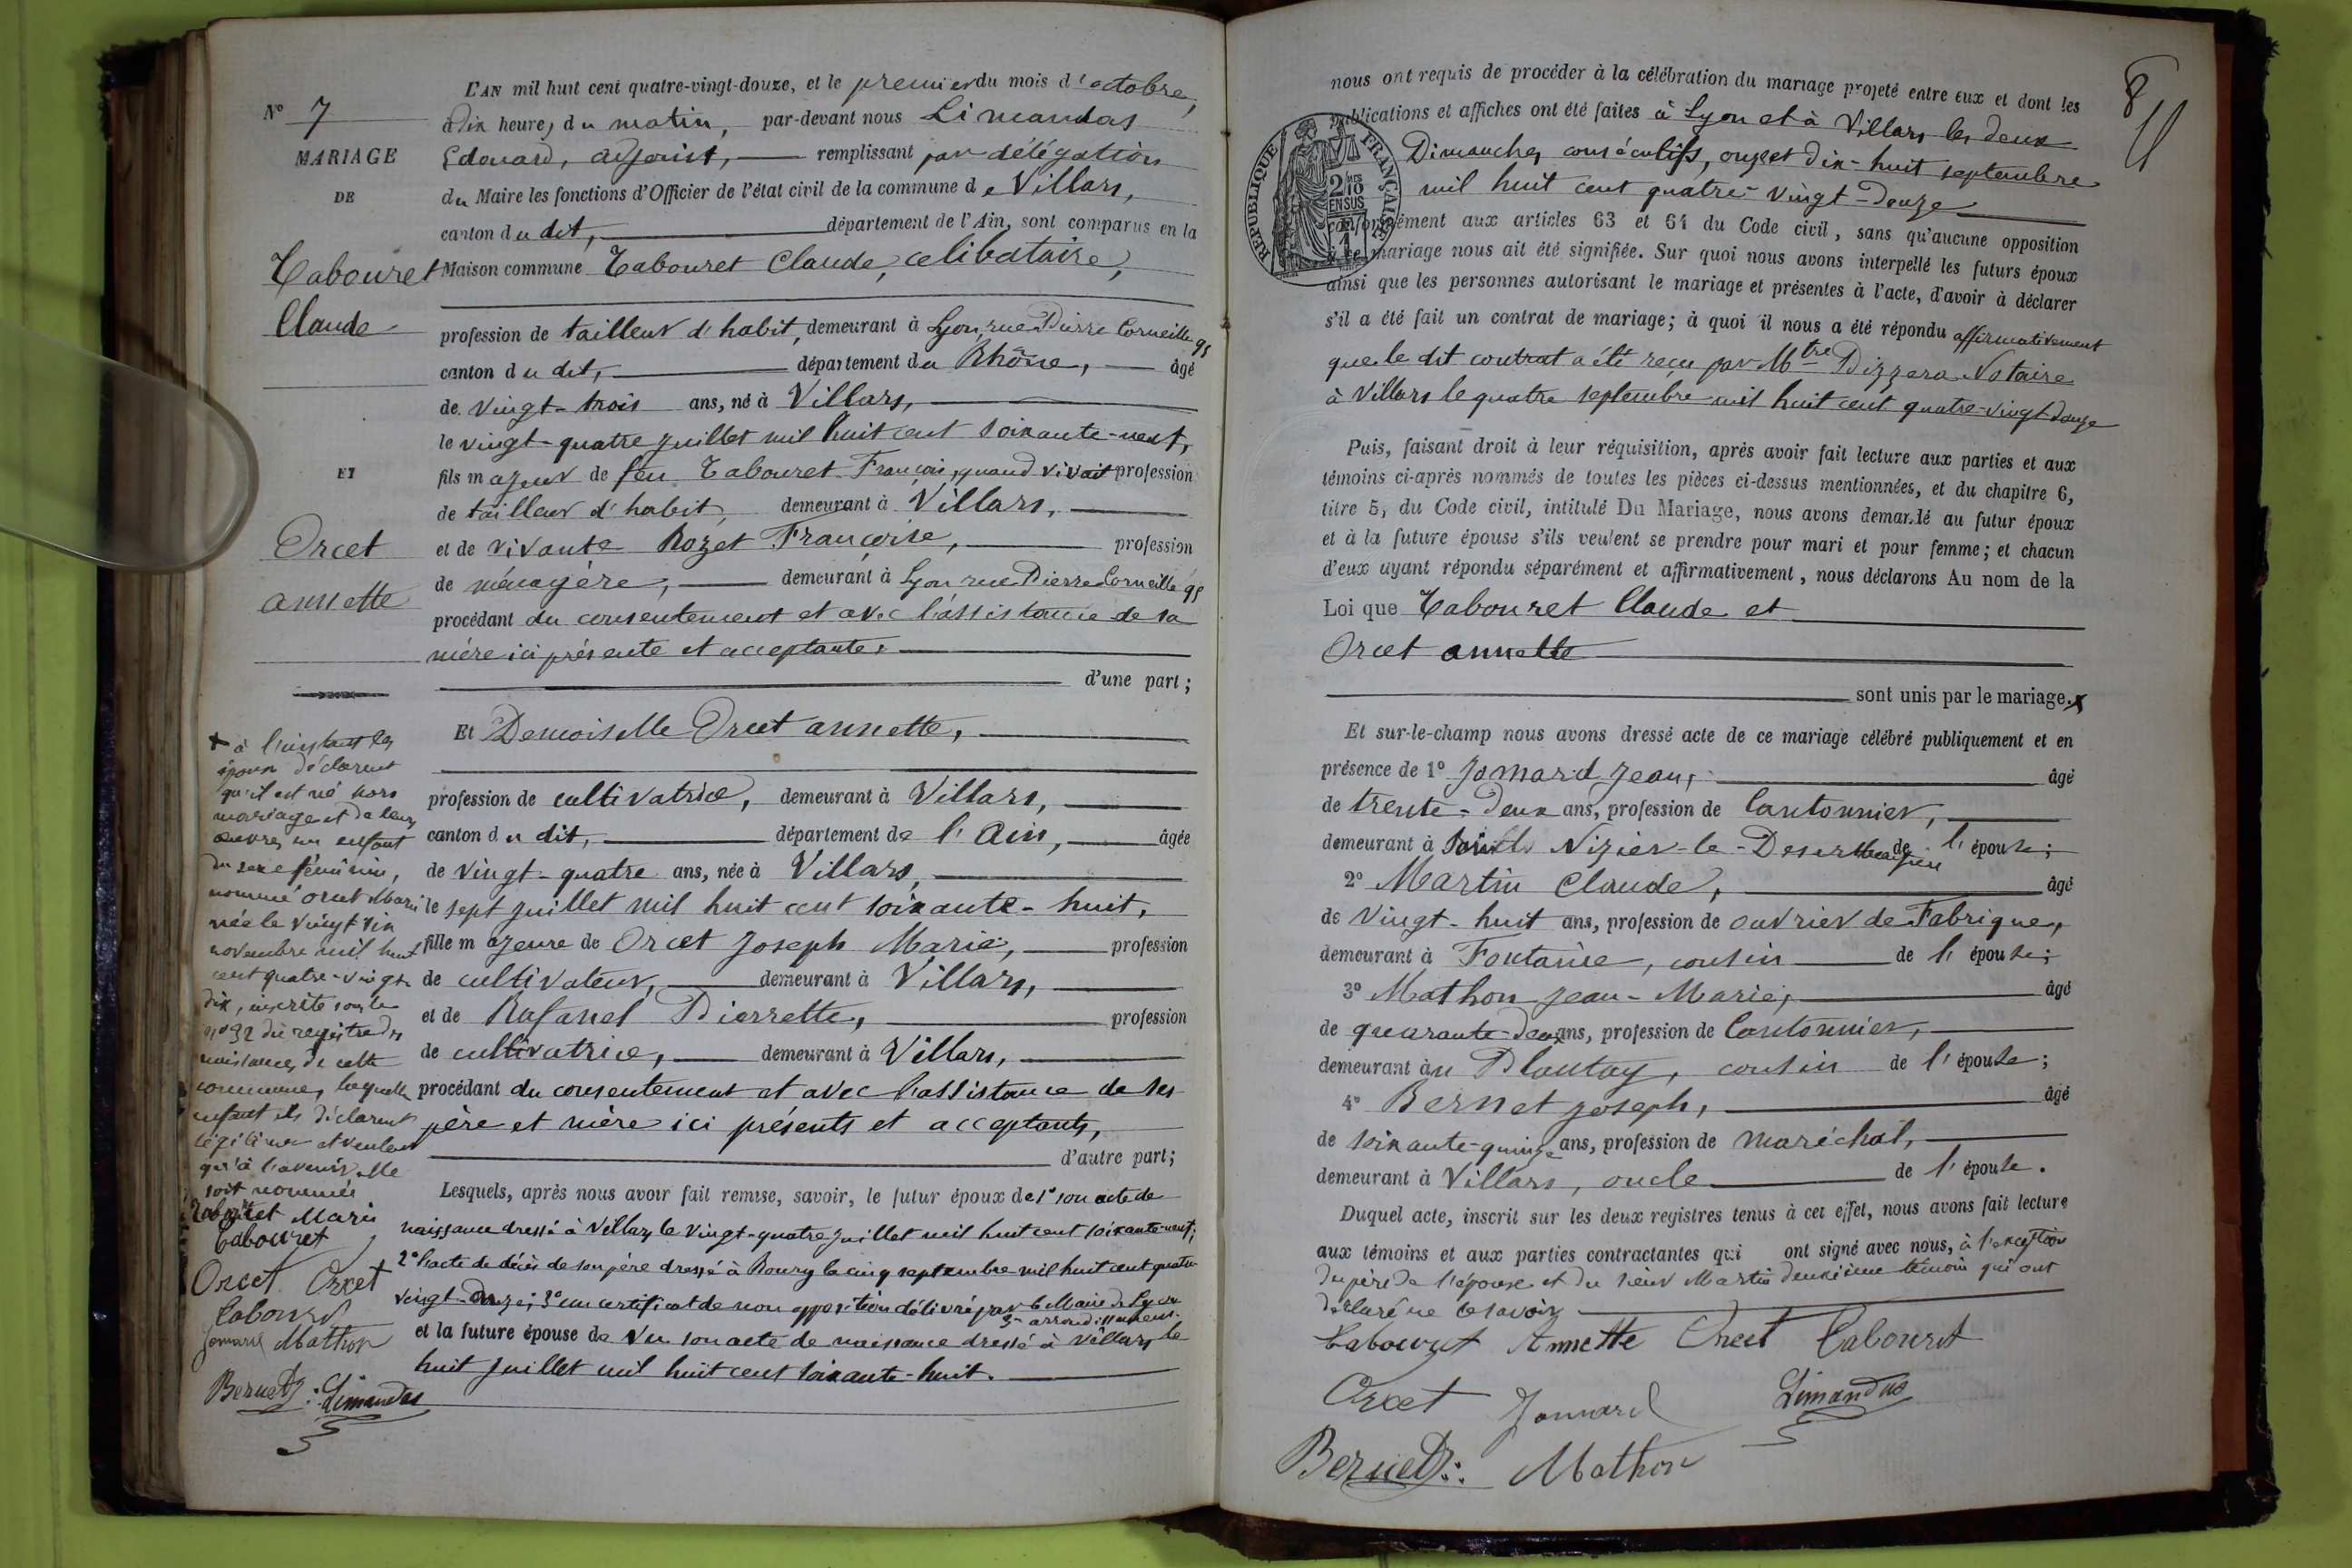 N° 7
MARIAGE
DE
Tabouret
Claude
ET
Orcet
annette
L'AN mil huit cent quatre-vingt-douze, et le premier du mois d'octobre,
à dix heures du matin, par-devant nous Limandas
Edouard, adjoint, remplissant par délégation
du Maire les fonctions d'Officier de l'état civil de la commune de Villars,
canton du dit, département de l'Ain, sont comparus en la
Maison commune Tabouret Claude, celibataire,
profession de tailleur d'habit, demeurant à Lyon, rue Pierre Corneille 95
canton du dit, département du Rhône, âgé
de vingt-trois ans, né à Villars,
le vingt-quatre juillet mil huit cent soixante-neuf,
fils majeur de feu Tabouret François, quand vivait profession
de tailleur d'habit, demeurant à Villars,
et de vivante Rozet Françoise, profession
de ménagère, demeurant à Lyon rue Pierre Corneille 95
procédant du consentement et avec l'assistance de sa
mère ici présente et acceptante,
d'une part;
Et Demoiselle Orcet annette,
profession de cultivatrice, demeurant à Villars,
canton du dit, département de l'Ain, âgée
de vingt-quatre ans, née à Villars,
le sept juillet mil huit cent soixante-huit,
fille majeure de Orcet Joseph Marie, profession
de cultivateur, demeurant à Villars,
et de Rafanel Pierrette, profession
de cultivatrice, demeurant à Villars,
procédant du consentement et avec l'assistance de ses
père et mère ici présents et acceptants,
d'autre part;
Lesquels, après nous avoir fait remise, savoir, le futur époux de 1° son acte de
naissance dressé à Villars le vingt-quatre juillet mil huit cent soixante-neuf;
2° l'acte de décès de son père dressé à Bourg le cinq septembre mil huit cent quatre-
vingt-onze; 3° un certificat de non opposition délivré par le Maire de Lyon
3e arrondissement.
et la future épouse de vu son acte de naissance dressé à Villars le
huit juillet mil huit cent soixante-huit.
x à l'instant les
époux déclarent
qu'il est né hors
mariage et de leurs
œuvres un enfant
du sexe féminin,
nommé Orcet Marie
née le vingt six
novembre mil huit
cent quatre-vingt-
dix, inscrite sous le
n° 32 du registre des
naissances de cette
commune, laquelle
enfant ils déclarent
légitimer et veulent
qu'à l'avenir elle
soit nommée
Tabouret Marie
Tabouret
Orcet Orcet
Tabouret
Jomard Mathon
Bernet Limandas
8
nous ont requis de procéder à la célébration du mariage projeté entre eux et dont les
publications et affiches ont été faites à Lyon et à Villars les deux
Dimanches consécutifs, onze et dix-huit septembre
mil huit cent quatre-vingt-douze
RÉPUBLIQUE FRANÇAISE
2/10 EN SUS
conformément aux articles 63 et 64 du Code civil, sans qu'aucune opposition
à ce mariage nous ait été signifiée. Sur quoi nous avons interpellé les futurs époux
ainsi que les personnes autorisant le mariage et présentes à l'acte, d'avoir à déclarer
s'il a été fait un contrat de mariage; à quoi il nous a été répondu affirmativement
que le dit contrat a été reçu par Mtre Dizzera Notaire
à Villars le quatre septembre mil huit cent quatre-vingt-douze
Puis, faisant droit à leur réquisition, après avoir fait lecture aux parties et aux
témoins ci-après nommés de toutes les pièces ci-dessus mentionnées, et du chapitre 6,
titre 5, du Code civil, intitulé Du Mariage, nous avons demandé au futur époux
et à la future épouse s'ils veulent se prendre pour mari et pour femme; et chacun
d'eux ayant répondu séparément et affirmativement, nous déclarons Au nom de la
Loi que Tabouret Claude et
Orcet annette
sont unis par le mariage. x
Et sur-le-champ nous avons dressé acte de ce mariage célébré publiquement et en
présence de 1° Jomard Jean, âgé
de trente-deux ans, profession de Cantonnier,
demeurant à Saint Nizier-le-Desert de l'épouse;
2° Martin Claude, âgé
de vingt-huit ans, profession de ouvrier de Fabrique,
demeurant à Fontaine, cousin de l'épouse;
3° Mathon Jean-Marie, âgé
de quarante-deux ans, profession de Cantonnier,
demeurant au Plantay, cousin de l'épouse;
4° Bernet Joseph, âgé
de soixante-quinze ans, profession de maréchal,
demeurant à Villars, oncle de l'épouse.
Duquel acte, inscrit sur les deux registres tenus à cet effet, nous avons fait lecture
aux témoins et aux parties contractantes qui ont signé avec nous, à l'exception
du père de l'épouse et du sieur Martin deuxième témoin qui ont
déclaré ne le savoir
Tabouret Annette Orcet Tabouret
Orcet Jomard Limandas
Bernet Mathon